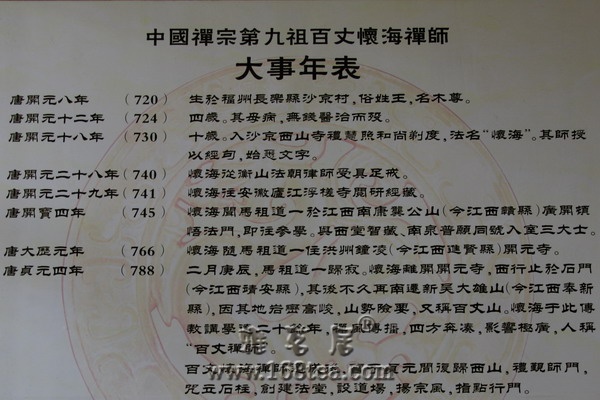 中國禪宗第九祖百丈懷海禪師
大事年表
唐開元八年 (720) 生於福州長樂縣沙京村，俗姓王，名木尊。
唐開元十二年 (724) 四歲。其母病，無錢醫治而殁。
唐開元十八年 (730) 十歲。入沙京西山寺禮慧照和尚剃度，法名“懷海”。其師授
以經句，始悉文字。
唐開元二十八年 (740) 懷海從衡山法朝律師受具足戒。
唐開元二十九年 (741) 懷海往安徽廬江浮槎寺閱研經藏。
唐開寶四年 (745) 懷海聞馬祖道一於江西南康龔公山(今江西贛縣)廣開頓
悟法門，即往參學。與西堂智藏、南泉普願同號入室三大士。
唐大歷元年 (766) 懷海隨馬祖道一住洪州鐘凌(今江西進賢縣)開元寺。
唐貞元四年 (788) 二月庚辰，馬祖道一歸寂。懷海離開開元寺，西行止於石門
(今江西靖安縣)，其後不久再南遷新吴大雄山(今江西奉新
縣)，因其地岩巒高峻，山勢險要，又稱百丈山。懷海于此傳
教講學達二十餘年，禪風傳播，四方奔湊，影響極廣，人稱
“百丈禪師”。
百丈懷海禪師 貞元間復歸西山，禮覲師門，
咒立石柱，創建法堂，設道場，揚宗風，指點行門。
雅茗居®
www.168tea.com